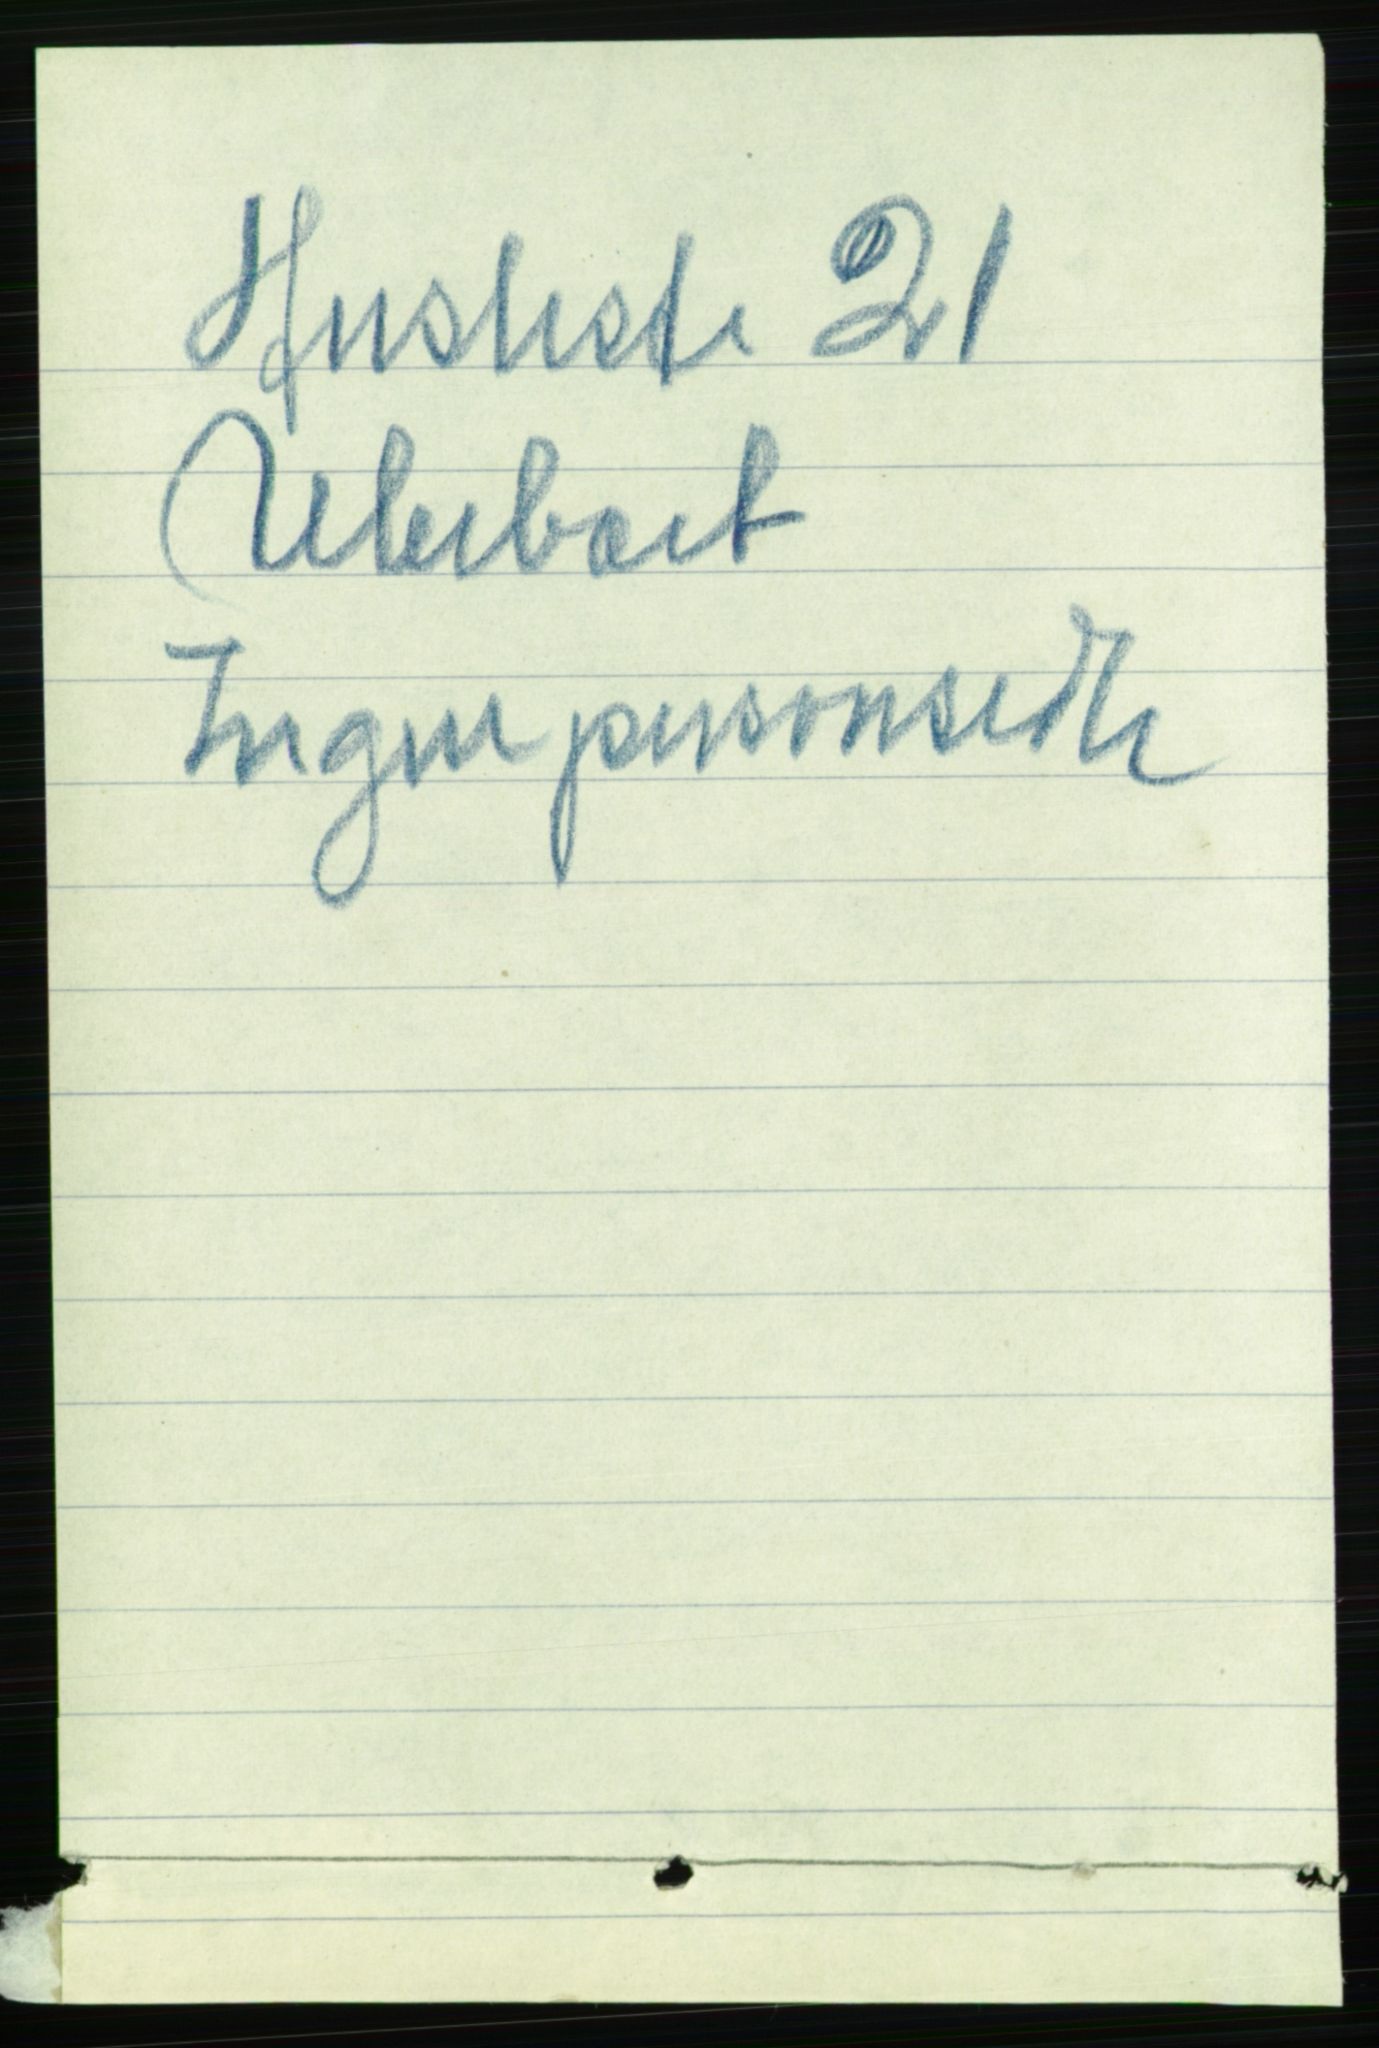 Husliste 21
Ubeboet
Ingen personsedler